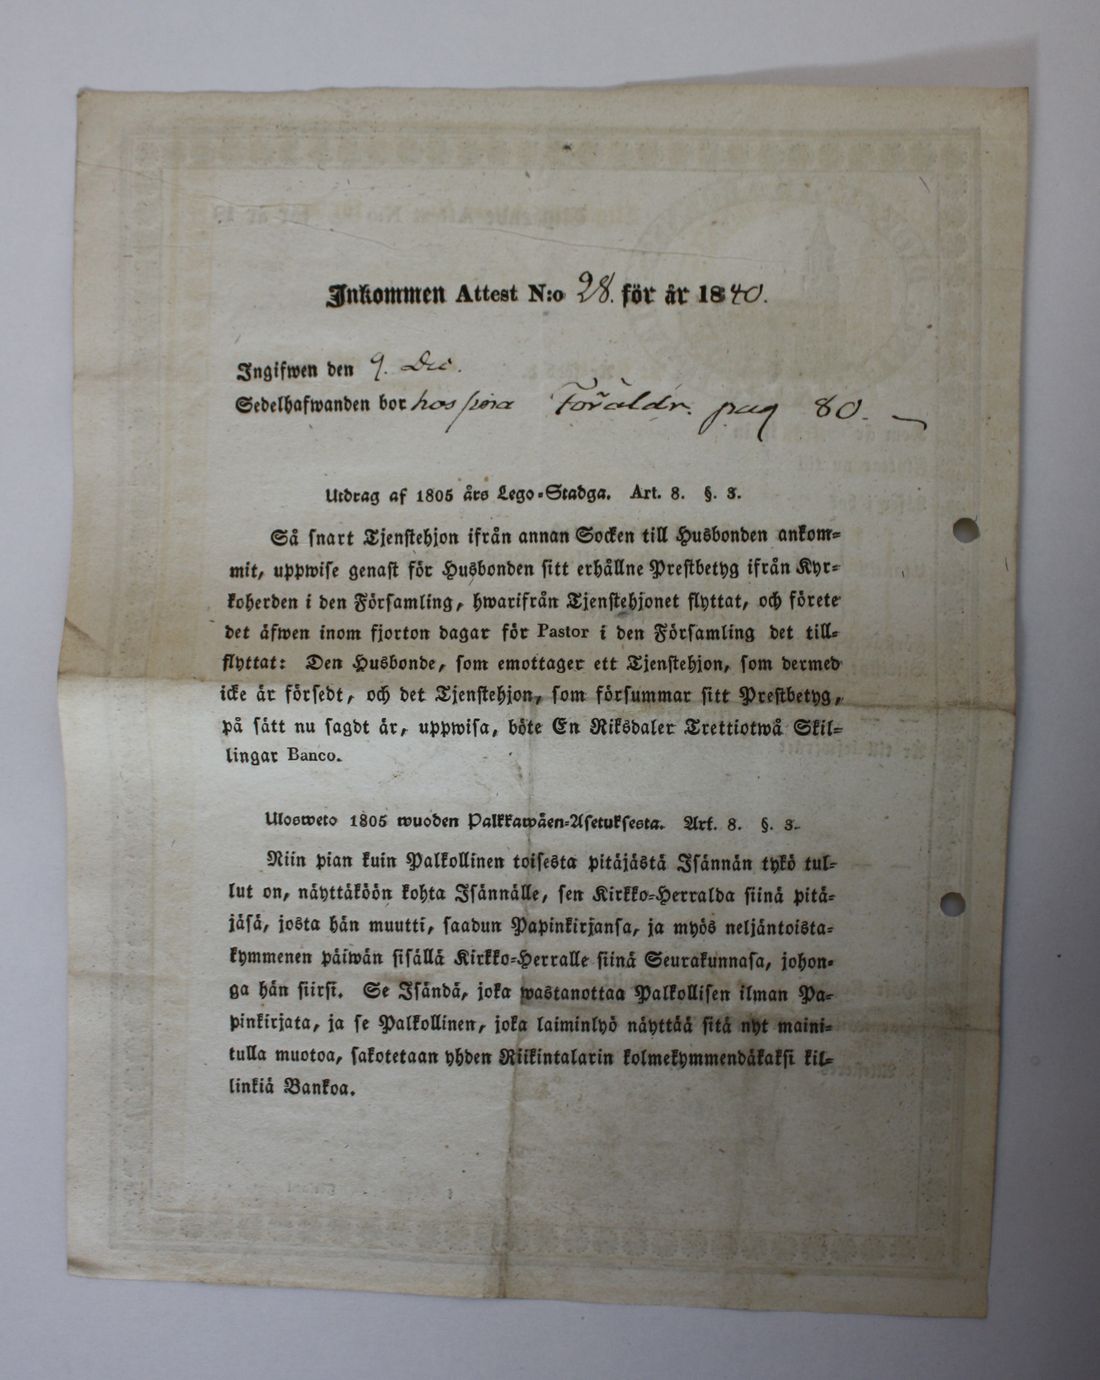 Inkommen Attest N:o 28. för år 1840.
Ingifwen den 9. Dec.
Sedelhafwanden bor hos sina Föräldr. pag 80.
Utdrag af 1805 års Lego-Stadga. Art. 8. §. 3.
Så snart Tjenstehjon ifrån annan Socken till Husbonden ankom-
mit, uppwise genast för Husbonden sitt erhållne Prestbetyg ifrån Kyr-
koherden i den Församling, hwarifrån Tjenstehjonet flyttat, och förete
det äfwen inom fjorton dagar för Pastor i den Församling det till-
flyttat: Den Husbonde, som emottager ett Tjenstehjon, som dermed
icke är försedt, och det Tjenstehjon, som försummar sitt Prestbetyg,
på sätt nu sagdt är, uppwisa, böte En Riksdaler Trettiotwå Skil-
lingar Banco.
Ulosweto 1805 wuoden Palkkawäen-Asetuksesta. Art. 8. §. 3.
Niin pian kuin Palkollinen toisesta pitäjästä Isännän tykö tul-
lut on, näyttäköön kohta Isännälle, sen Kirkko-Herralda siinä pitä-
jäsä, josta hän muutti, saadun Papinkirjansa, ja myös neljäntoista-
kymmenen päiwän sisällä Kirkko-Herralle siinä Seurakunnasa, johon-
ga hän siirsi. Se Isändä, joka wastanottaa Palkollisen ilman Pa-
pinkirjata, ja se Palkollinen, joka laiminlyö näyttää sitä nyt maini-
tulla muotoa, sakotetaan yhden Riikintalarin kolmekymmendäkaksi kil-
linkiä Bankoa.